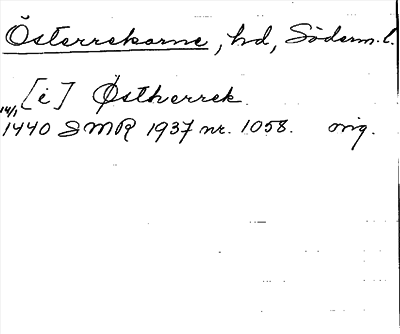 Österrekarne, hd, Söderm. l.
[i] Østherrek.
14/1 1440 SMR 1937 nr. 1058. orig.